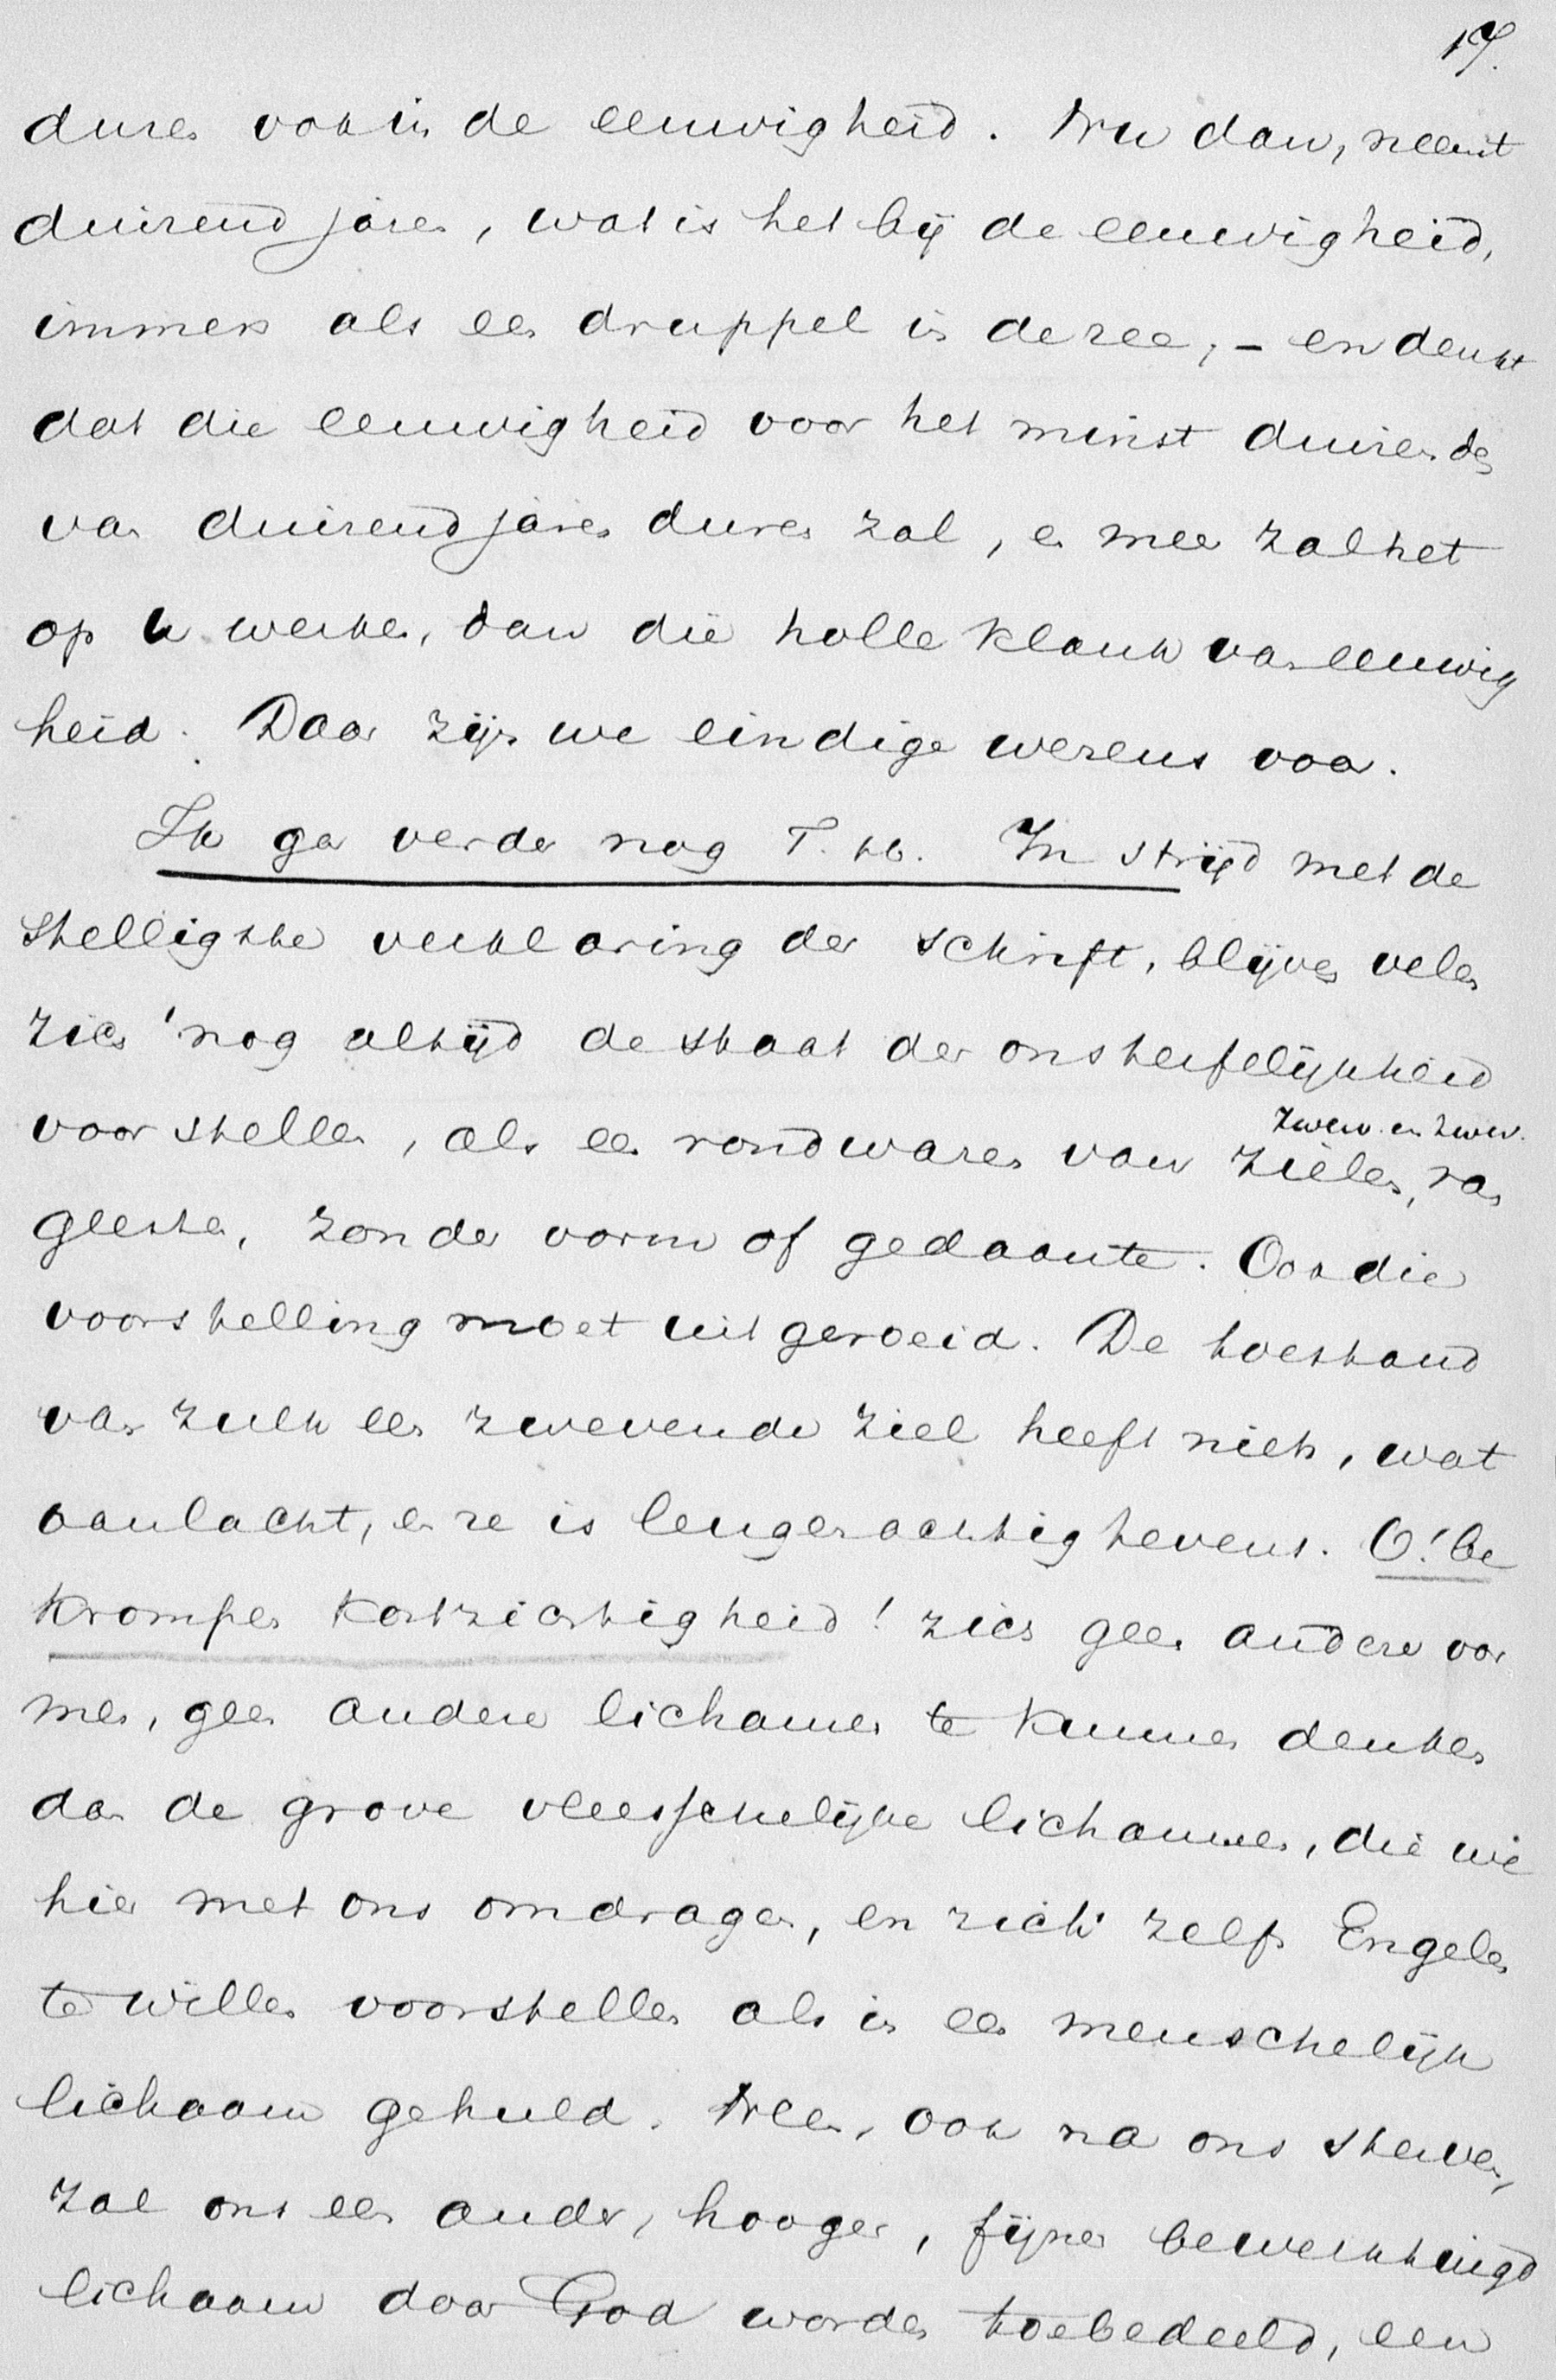 17.
duren ook in de eeuwigheid. Nu dan, neemt
duizend jaren, wat is het bij de eeuwigheid,
immers als een druppel in de zee, – en denkt
dat die eeuwigheid voor het minst duizenden
van duizend jaren duren zal, en meer zal het
op u werken, dan die holle klank van eeuwig
heid. Daar zijn we eindige wezens voor.
Ik ga verder nog T. h. In strijd met de
stelligste verklaring der schrift, blijven velen
zich nog altijd de staat der onsterfelijkheid
voorstellen, als een rondwaren van zielen, van
zwev. en zwev.
geesten, zonder vorm of gedaante. Ook die
voorstelling moet uitgeroeid. De toestand
van zulk een zwevende ziel heeft niets, wat
aanlacht, en ze is leugenachtig tevens. O! be
krompen kortzichtigheid! zich geen andere vor
men, geen andere lichamen te kunnen denken
dan de grove vleesschelijke lichamen, die wie
hier met ons omdragen, en zich zelfs Engelen
te willen voorstellen als in een menschelijk
lichaam gehuld. Neen, ook na ons sterven,
zal ons een ander, hooger, fijner bewerktuigd
lichaam door God worden toebedeeld, een